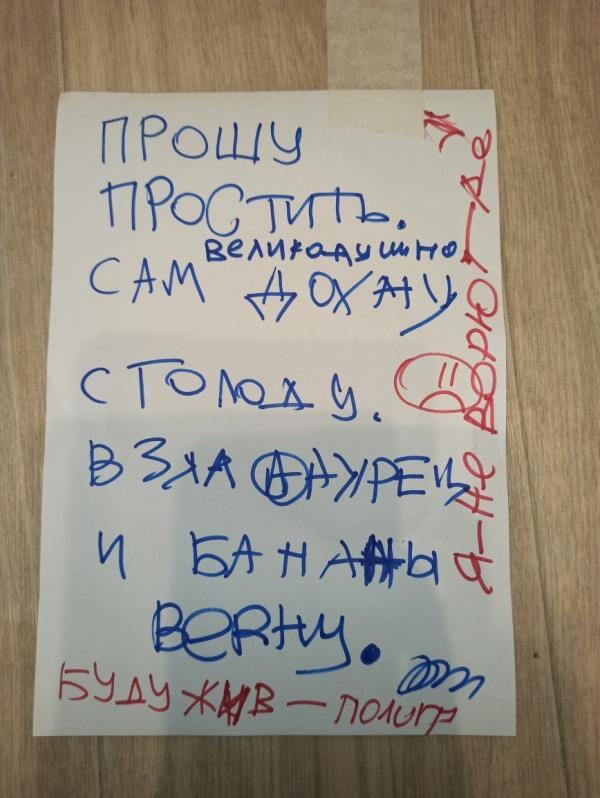 ПРОШУ
ПРОСТИТЬ.
великодушно
САМ ДОХАНУ
С ГОЛОДУ.
ВЗЯЛ ОГУРЕЦ
И БАНАНЫ
ВЕРНУ.
БУДУ ЖИВ — ПОЛИГР
Я-НЕ ВОРЮГ-ДЕ